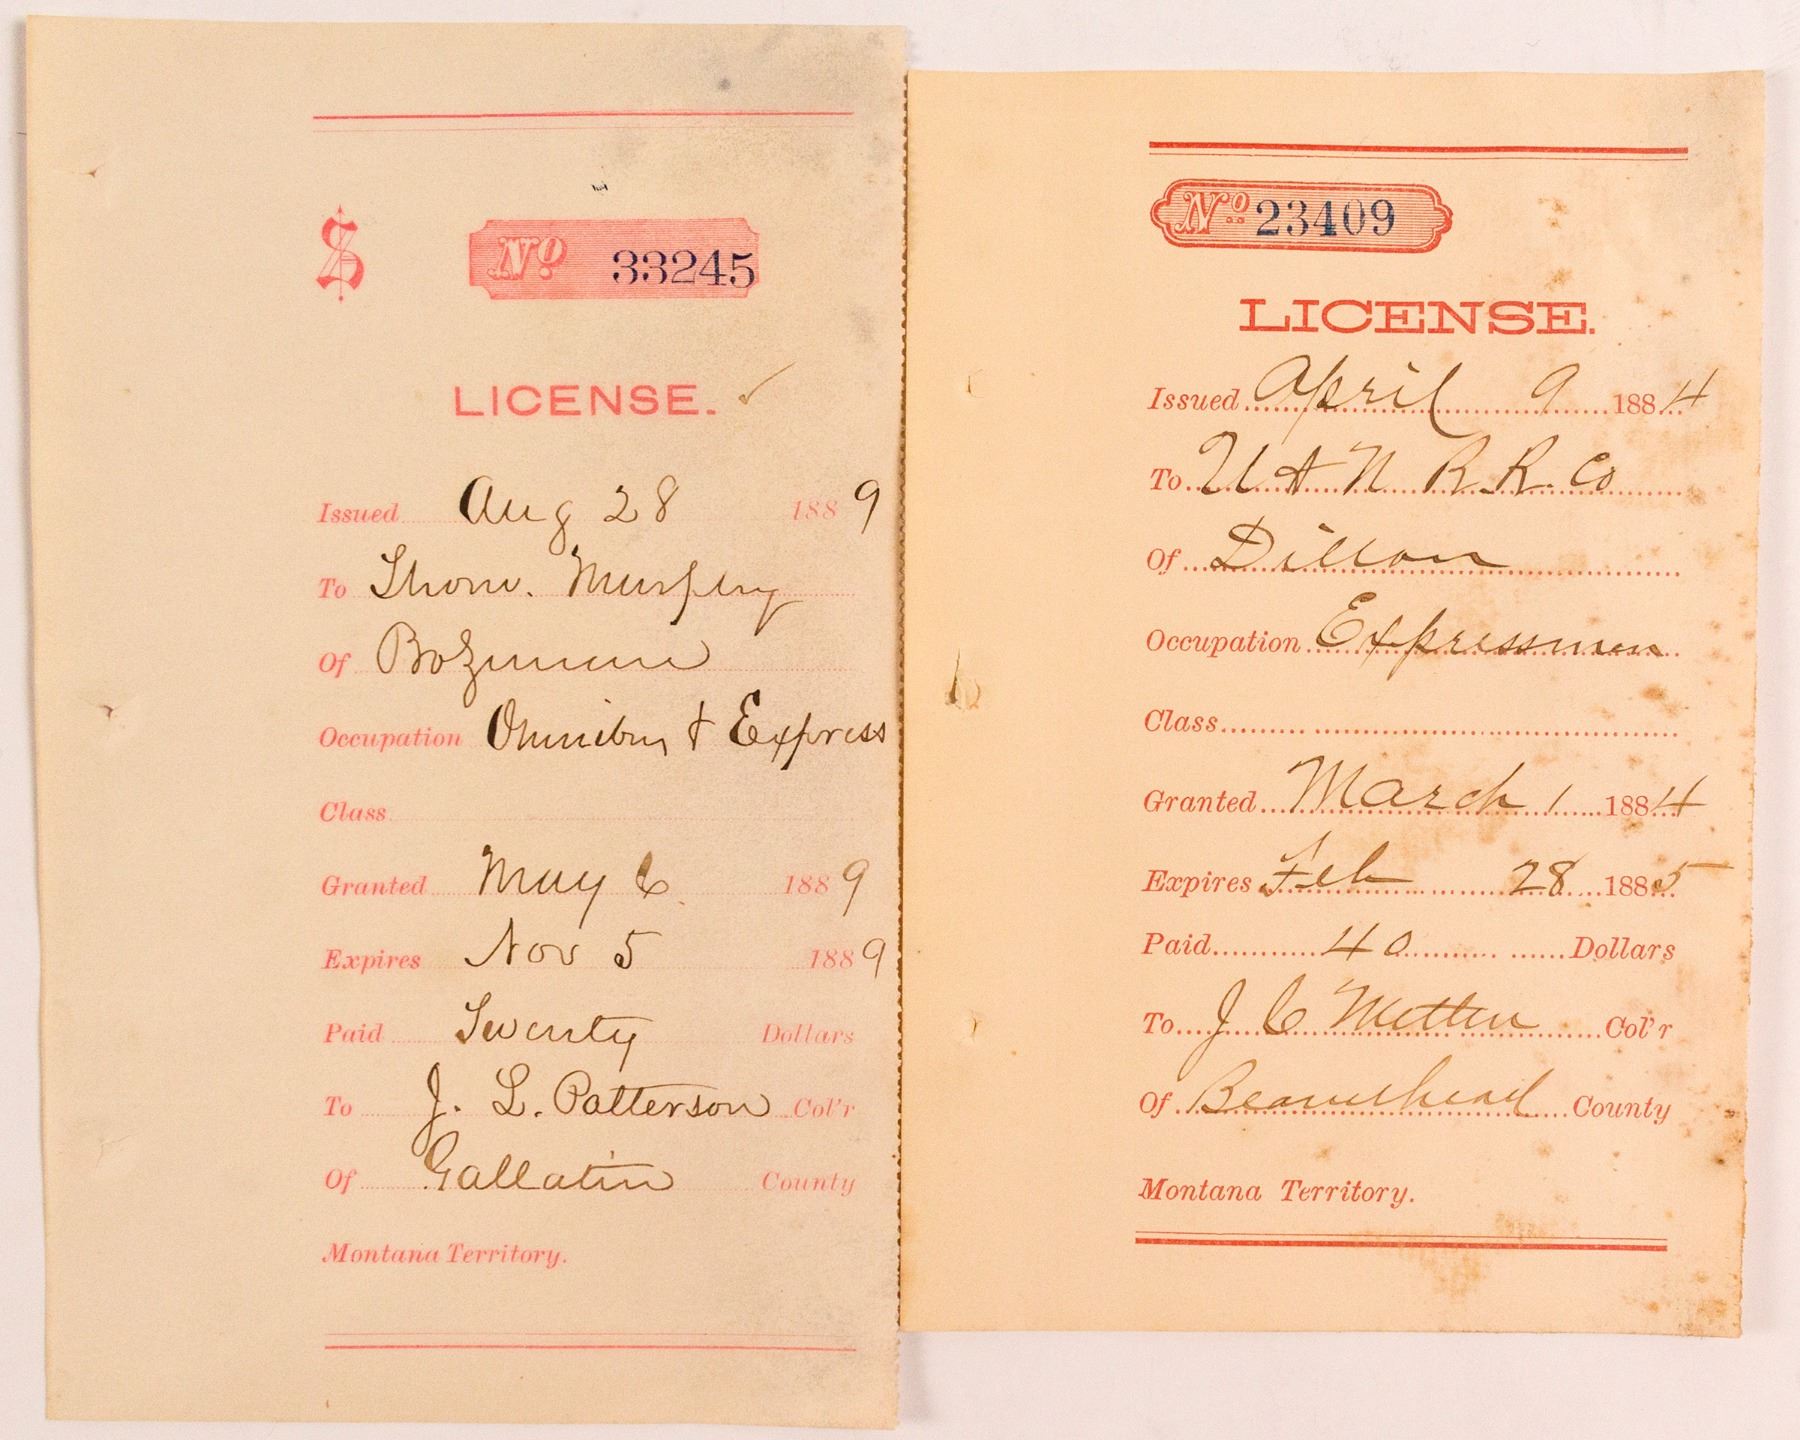 $ No 33245
LICENSE.
Issued Aug 28 1889
To Thom. Murphy
Of Bozeman
Occupation Omnibus & Express
Class
Granted May 6 1889
Expires Nov 5 1889
Paid Twenty Dollars
To J. L. Patterson Col'r
Of Gallatin County
Montana Territory.
No 23409
LICENSE.
Issued April 9 1884
To U & N R.R. Co
Of Dillon
Occupation Expressmen
Class
Granted March 1 1884
Expires Feb 28 1885
Paid 40 Dollars
To J C Metten Col'r
Of Beaverhead County
Montana Territory.